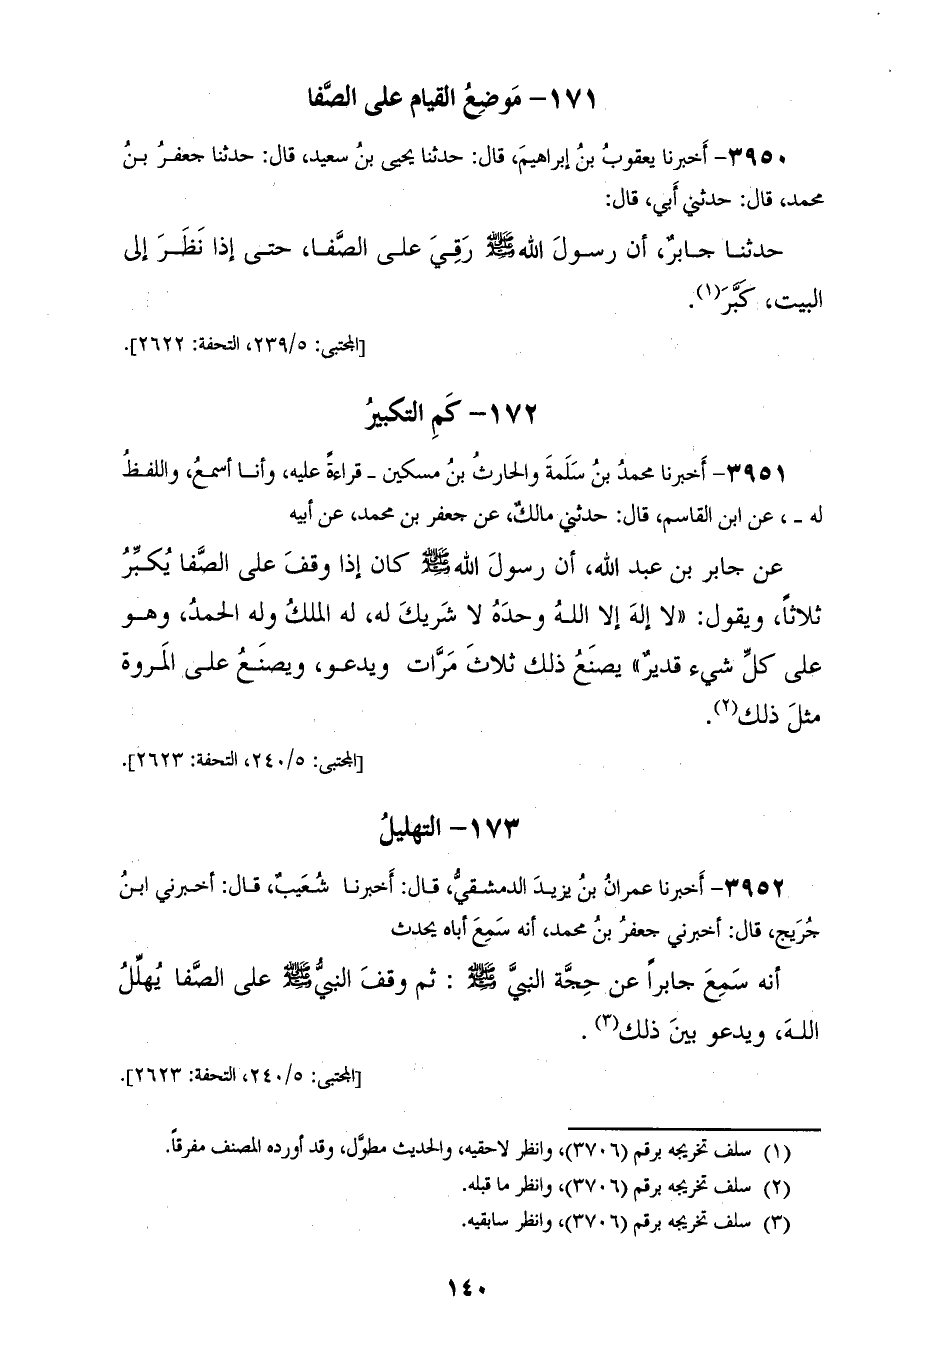 ١٧١- مَوضِعُ القيام على الصَّفا
٣٩٥٠- أَخبرنا يعقوبُ بنُ إبراهيمَ، قال: حدثنا يحيى بنُ سعيد، قال: حدثنا جعفرُ بنُ
محمد، قال: حدثني أَبي، قال:
حدثنا جابرٌ، أن رسولَ اللهﷺ رَقِيَ على الصَّفا، حتى إذا نَظَرَ إلى
البيت، كَبَّرَ(١).
[المجتبى: ٢٣٩/٥، التحفة: ٢٦٢٢].
١٧٢- كَمِ التكبيرُ
٣٩٥١- أَخبرنا محمدُ بنُ سَلَمةَ والحارثُ بنُ مسكين ـ قراءةً عليه، وأنا أسمعُ، واللفظُ
له ـ، عن ابن القاسم، قال: حدثني مالكٌ، عن جعفر بن محمد، عن أبيه
عن جابر بن عبد الله، أن رسولَ اللهﷺ كان إذا وقفَ على الصَّفا يُكبِّرُ
ثلاثاً، ويقول: «لا إلهَ إلا اللهُ وحدَهُ لا شَريكَ له، له الملكُ وله الحمدُ، وهو
على كلِّ شيء قديرٌ» يصنَعُ ذلك ثلاثَ مَرَّات ويدعو، ويصنَعُ على المَروة
مثلَ ذلك(٢).
[المجتبى: ٢٤٠/٥، التحفة: ٢٦٢٣].
١٧٣- التهليلُ
٣٩٥٢- أَخبرنا عمرانُ بنُ يزيدَ الدمشقيُّ، قال: أَخبرنا شُعَيبٌ، قال: أخبرني ابنُ
جُرَيج، قال: أخبرني جعفرُ بنُ محمد، أنه سَمِعَ أباه يحدث
أنه سَمِعَ جابراً عن حِجَّة النبيِّ ﷺ : ثم وقفَ النبيُّﷺ على الصَّفا يُهلِّلُ
اللهَ، ويدعو بينَ ذلك(٣).
[المجتبى: ٢٤٠/٥، التحفة: ٢٦٢٣].
(١) سلف تخريجه برقم (٣٧٠٦)، وانظر لاحقيه، والحديث مطوَّل، وقد أورده المصنف مفرقاً.
(٢) سلف تخريجه برقم (٣٧٠٦)، وانظر ما قبله.
(٣) سلف تخريجه برقم (٣٧٠٦)، وانظر سابقيه.
١٤٠